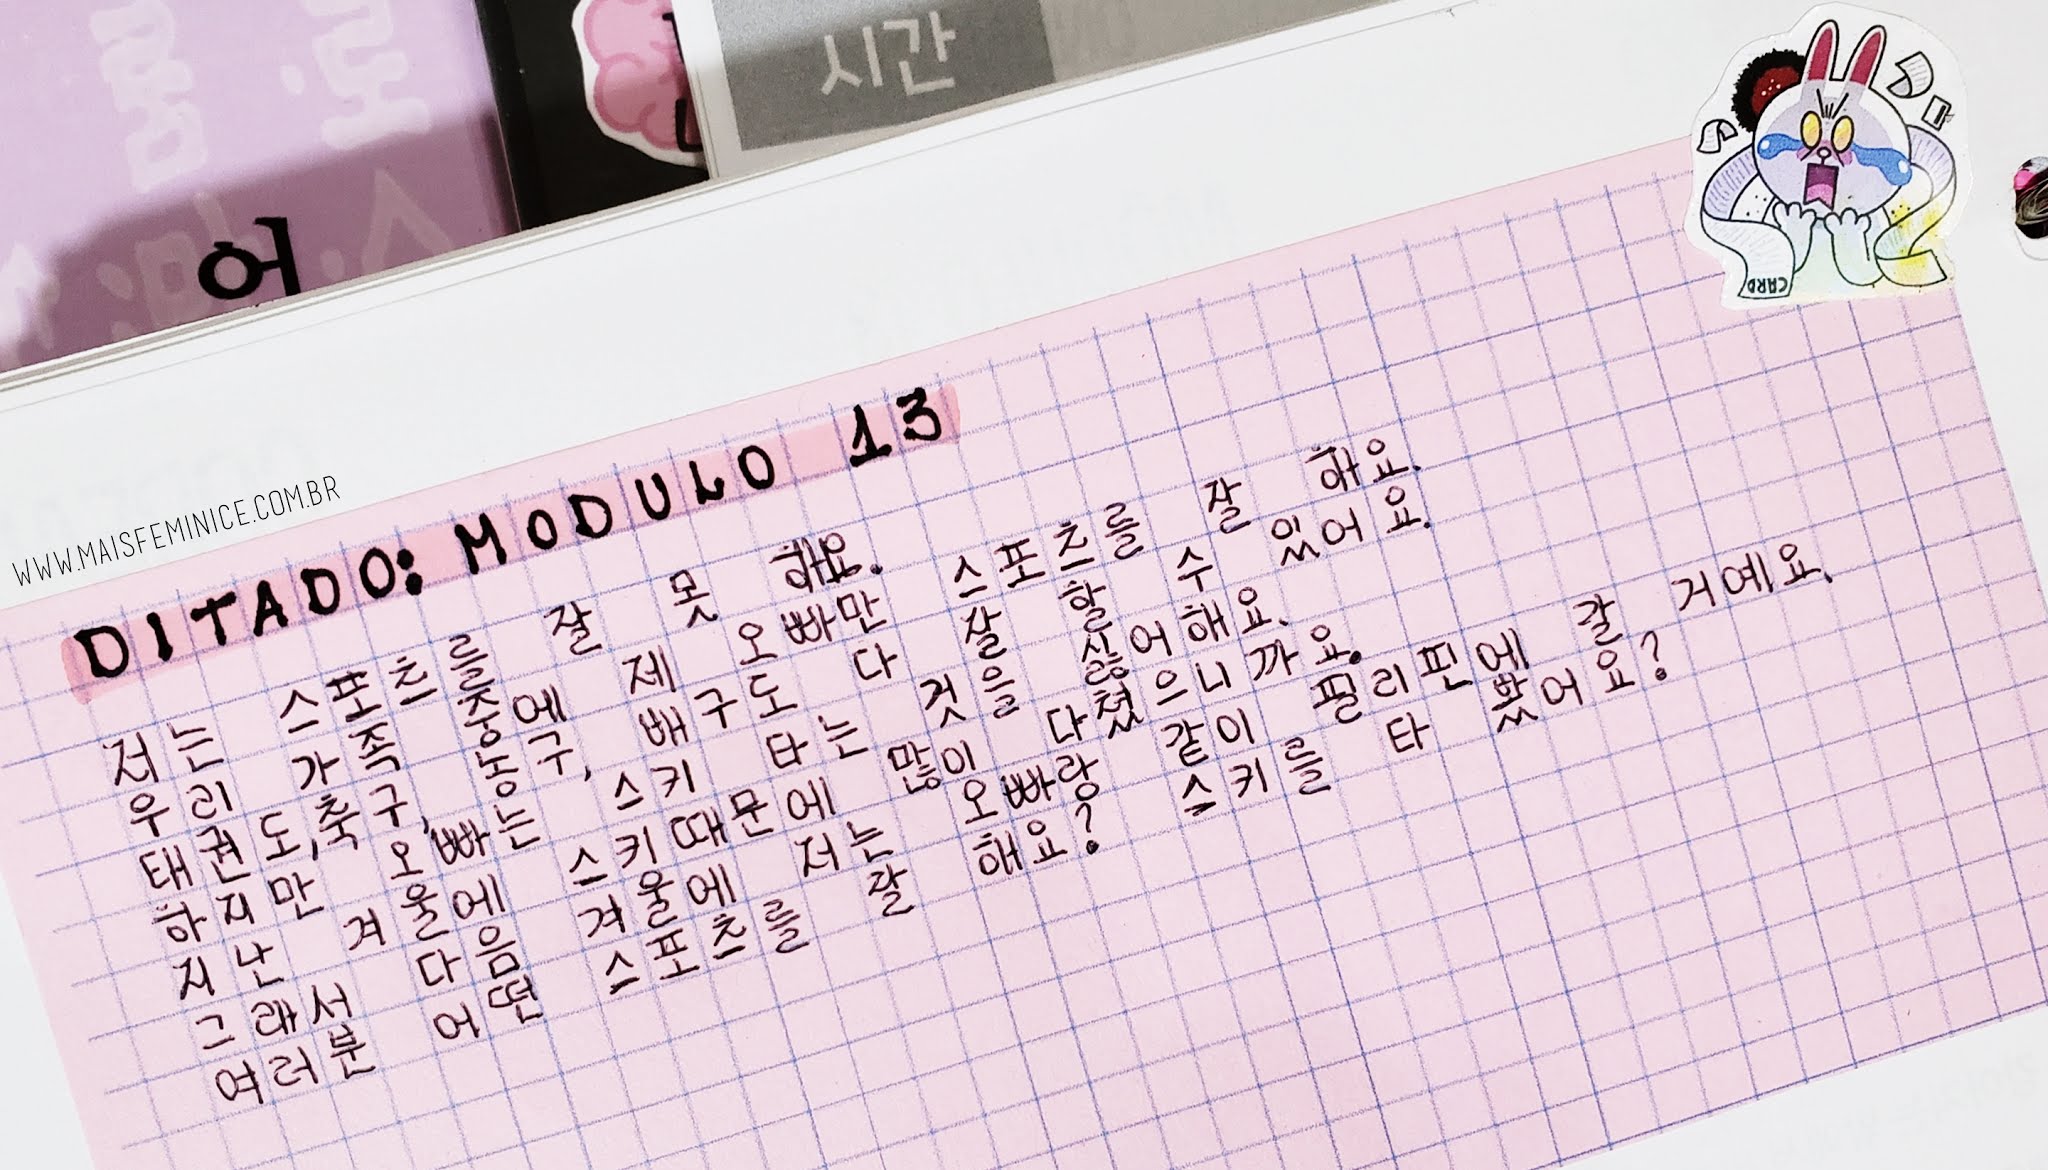 시간
어
WWW.MAISFEMINICE.COM.BR
CARD
DITADO: MODULO 13
저는 스포츠를 잘 못 해요.
우리 가족 중에 제 오빠만 스포츠를 잘 해요.
태권도, 축구, 농구, 배구도 다 잘 할 수 있어요.
하지만 오빠는 스키 타는 것을 싫어해요.
지난 겨울에 스키때문에 많이 다쳤으니까요.
그래서 다음 겨울에 저는 오빠랑 같이 필리핀에 갈 거예요.
여러분 어떤 스포츠를 잘 해요? 스키를 타 봤어요?